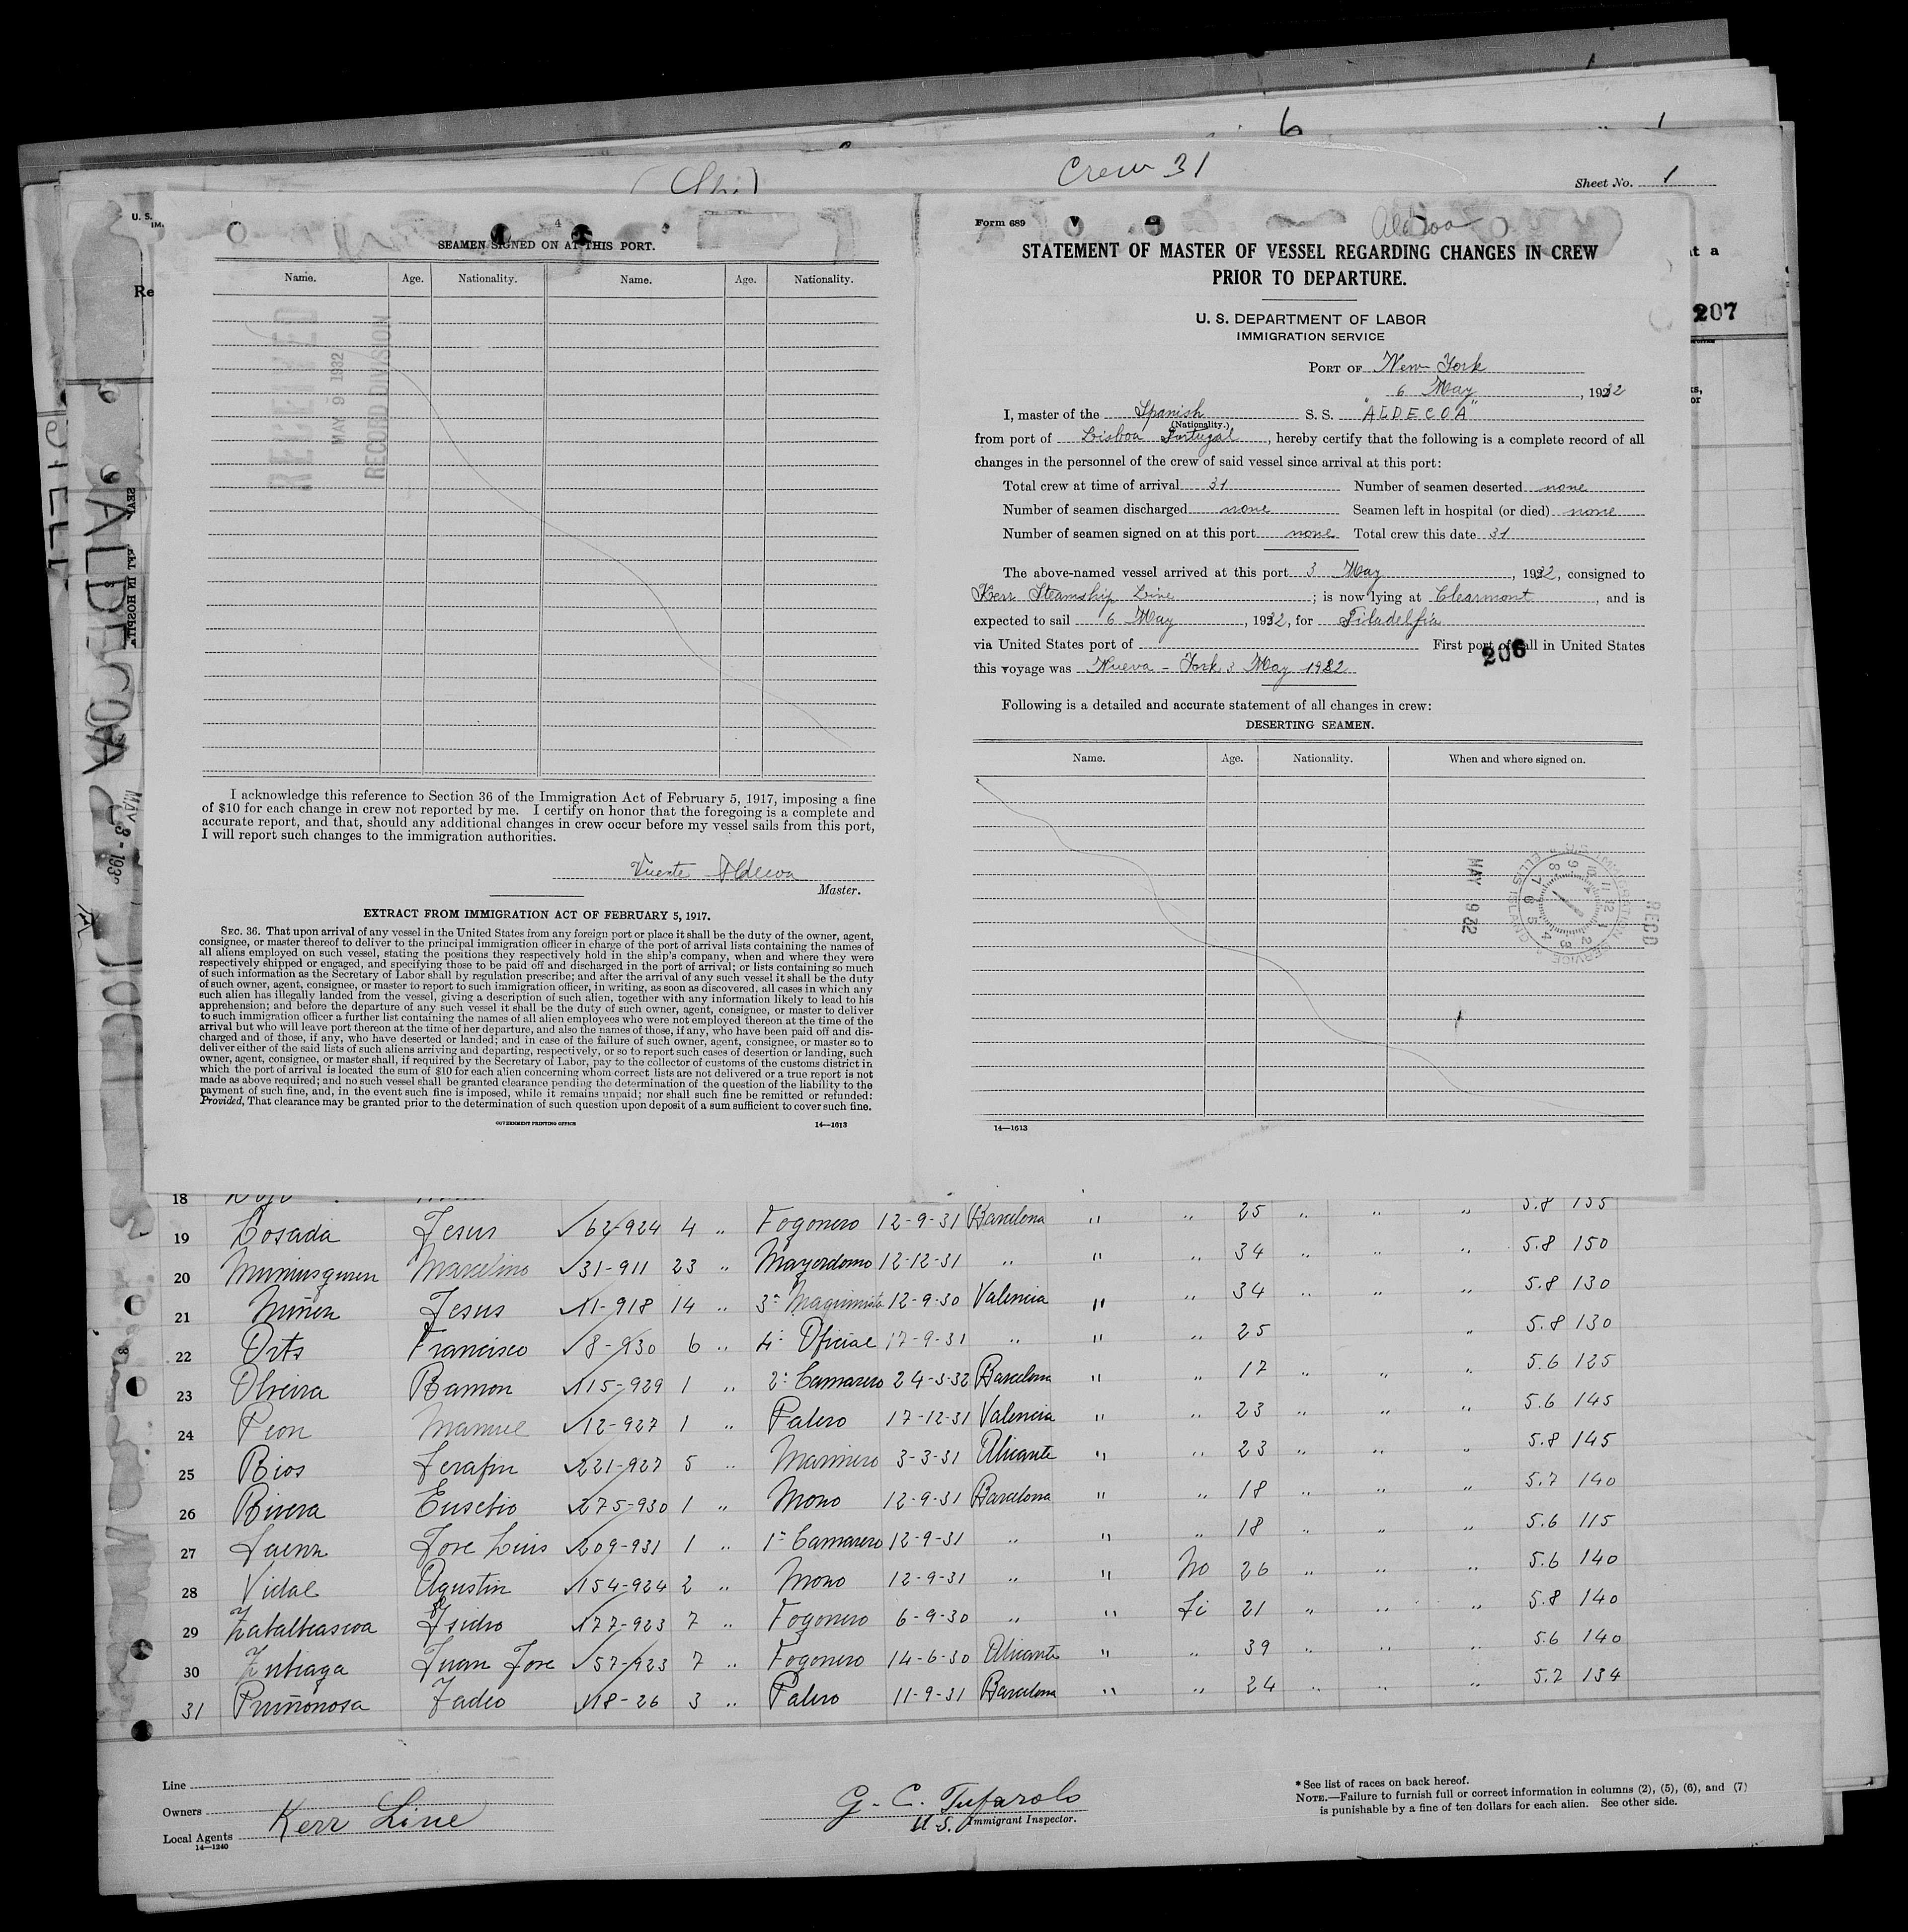 Crew 31
Sheet No. 1
4
SEAMEN SIGNED ON AT THIS PORT.
Name. Age. Nationality. Name. Age. Nationality.
RECEIVED
MAY 9 1932
RECORD DIVISION
I acknowledge this reference to Section 36 of the Immigration Act of February 5, 1917, imposing a fine
of $10 for each change in crew not reported by me. I certify on honor that the foregoing is a complete and
accurate report, and that, should any additional changes in crew occur before my vessel sails from this port,
I will report such changes to the immigration authorities.
Master.
EXTRACT FROM IMMIGRATION ACT OF FEBRUARY 5, 1917.
SEC. 36. That upon arrival of any vessel in the United States from any foreign port or place it shall be the duty of the owner, agent,
consignee, or master thereof to deliver to the principal immigration officer in charge of the port of arrival lists containing the names of
all aliens employed on such vessel, stating the positions they respectively hold in the ship's company, when and where they were
respectively shipped or engaged, and specifying those to be paid off and discharged in the port of arrival; or lists containing so much
of such information as the Secretary of Labor shall by regulation prescribe; and after the arrival of any such vessel it shall be the duty
of such owner, agent, consignee, or master to report to such immigration officer, in writing, as soon as discovered, all cases in which any
such alien has illegally landed from the vessel, giving a description of such alien, together with any information likely to lead to his
apprehension; and before the departure of any such vessel it shall be the duty of such owner, agent, consignee, or master to deliver
to such immigration officer a further list containing the names of all alien employees who were not employed thereon at the time of the
arrival but who will leave port thereon at the time of her departure, and also the names of those, if any, who have been paid off and dis-
charged and of those, if any, who have deserted or landed; and in case of the failure of such owner, agent, consignee, or master so to
deliver either of the said lists of such aliens arriving and departing, respectively, or so to report such cases of desertion or landing, such
owner, agent, consignee, or master shall, if required by the Secretary of Labor, pay to the collector of customs of the customs district in
which the port of arrival is located the sum of $10 for each alien concerning whom correct lists are not delivered or a true report is not
made as above required; and no such vessel shall be granted clearance pending the determination of the question of the liability to the
payment of such fine, and, in the event such fine is imposed, while it remains unpaid; nor shall such fine be remitted or refunded:
Provided, That clearance may be granted prior to the determination of such question upon deposit of a sum sufficient to cover such fine.
GOVERNMENT PRINTING OFFICE 14—1613
Form 689
STATEMENT OF MASTER OF VESSEL REGARDING CHANGES IN CREW
PRIOR TO DEPARTURE.
U. S. DEPARTMENT OF LABOR
IMMIGRATION SERVICE
207
PORT OF New York
6 May, 1932
I, master of the Spanish S. S. "ALDECOA"
(Nationality.)
from port of Lisboa Portugal, hereby certify that the following is a complete record of all
changes in the personnel of the crew of said vessel since arrival at this port:
Total crew at time of arrival 31 Number of seamen deserted none
Number of seamen discharged none Seamen left in hospital (or died) none
Number of seamen signed on at this port none Total crew this date 31
The above-named vessel arrived at this port 3 May, 1932, consigned to
Kerr Steamship Line; is now lying at Clearmont, and is
expected to sail 6 May, 1932, for Filadelfia
via United States port of First port of call in United States
206
this voyage was Nueva - York 3 May 1932
Following is a detailed and accurate statement of all changes in crew:
DESERTING SEAMEN.
Name. Age. Nationality. When and where signed on.
MAY 9 32
RECD
14—1613
ALDECOA
18 5.8 155
19 Losada Jesus 62-924 4 " Fogonero 12-9-31 Barcelona " " 25 " " " 5.8 150
20 Marcelino 31-911 23 " Mayordomo 12-12-31 " " " 34 " " " 5.8 150
21 Jesus 11-918 14 " 12-9-30 Valencia " " 34 " " " 5.8 130
22 Orts Francisco 8-930 6 " 4º Oficial 17-9-31 " " " 25 " 5.8 130
23 Olveira Ramon 115-929 1 " 2º Camarero 24-3-32 Barcelona " " 17 " " " 5.6 125
24 Peon Manuel 12-927 1 " Palero 17-12-31 Valencia " " 23 " " " 5.6 145
25 Rios Serafin 221-927 5 " Marinero 3-3-31 Alicante " " 23 " " " 5.8 145
26 Rivera Eusebio 275-930 1 " Mono 12-9-31 Barcelona " " 18 " " " 5.7 140
27 Saenz Jose Luis 209-931 1 " 1º Camarero 12-9-31 " " " 18 " " " 5.6 115
28 Vidal Agustin 154-924 2 " Mono 12-9-31 " " No 26 " " " 5.6 140
29 Isidro 177-923 7 " Fogonero 6-9-30 " " Si 21 " " " 5.8 140
30 Juan Jose 57-923 7 " Fogonero 14-6-30 Alicante " " 39 " " " 5.6 140
31 Tadeo 118-26 3 " Palero 11-9-31 Barcelona " " 24 " " " 5.7 134
Line
Owners
Local Agents Kerr Line
14—1240
G. C. Tufarolo
U.S. Immigrant Inspector.
* See list of races on back hereof.
NOTE.—Failure to furnish full or correct information in columns (2), (5), (6), and (7)
is punishable by a fine of ten dollars for each alien. See other side.